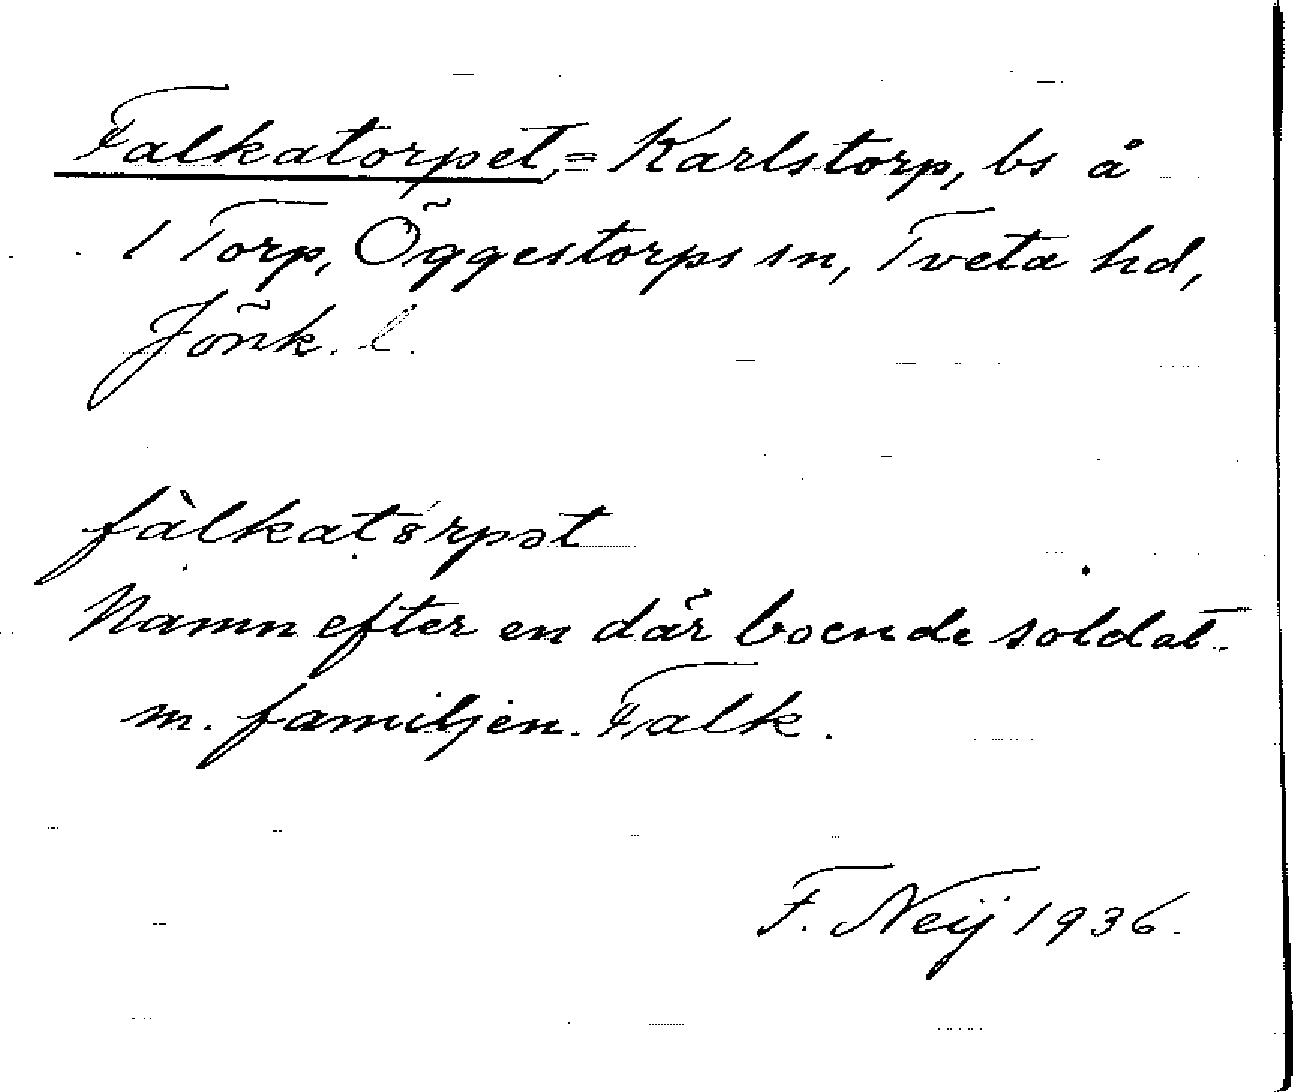 Falkatorpet, = Karlstorp, bs å
1 Torp, Öggestorps sn, Tveta hd,
Jönk. l.
fàlkatårpət
Namn efter en där boende soldat-
m. familjen. Falk.
F. Neij 1936.